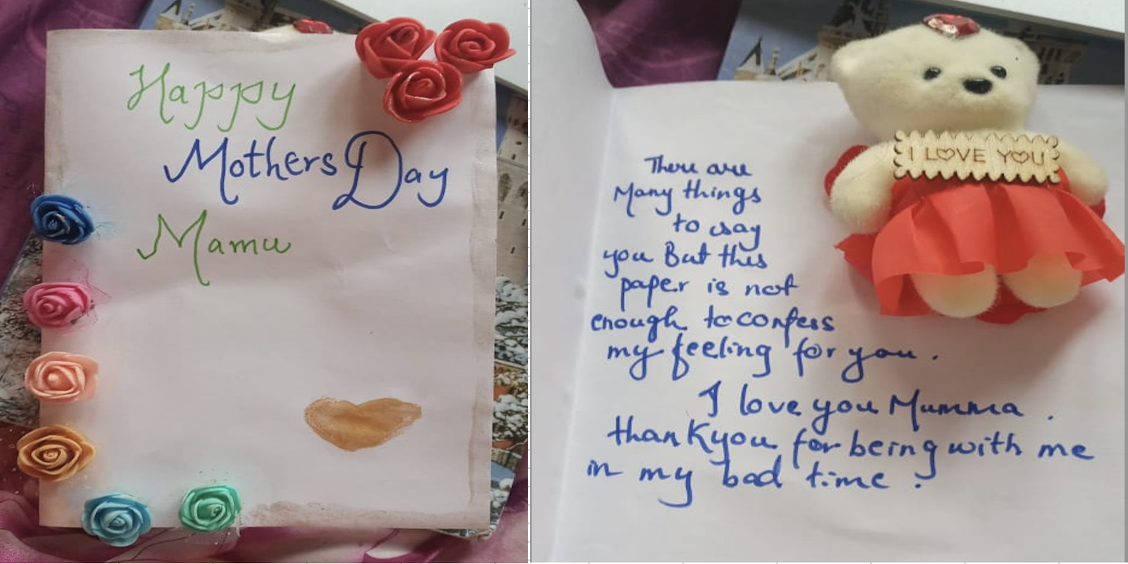 Happy
Mothers Day
Mamu
I LOVE YOU
There are
Many things
to say
you But this
paper is not
enough to confess
my feeling for you.
I love you Mumma.
thankyou for being with me
in my bad time.